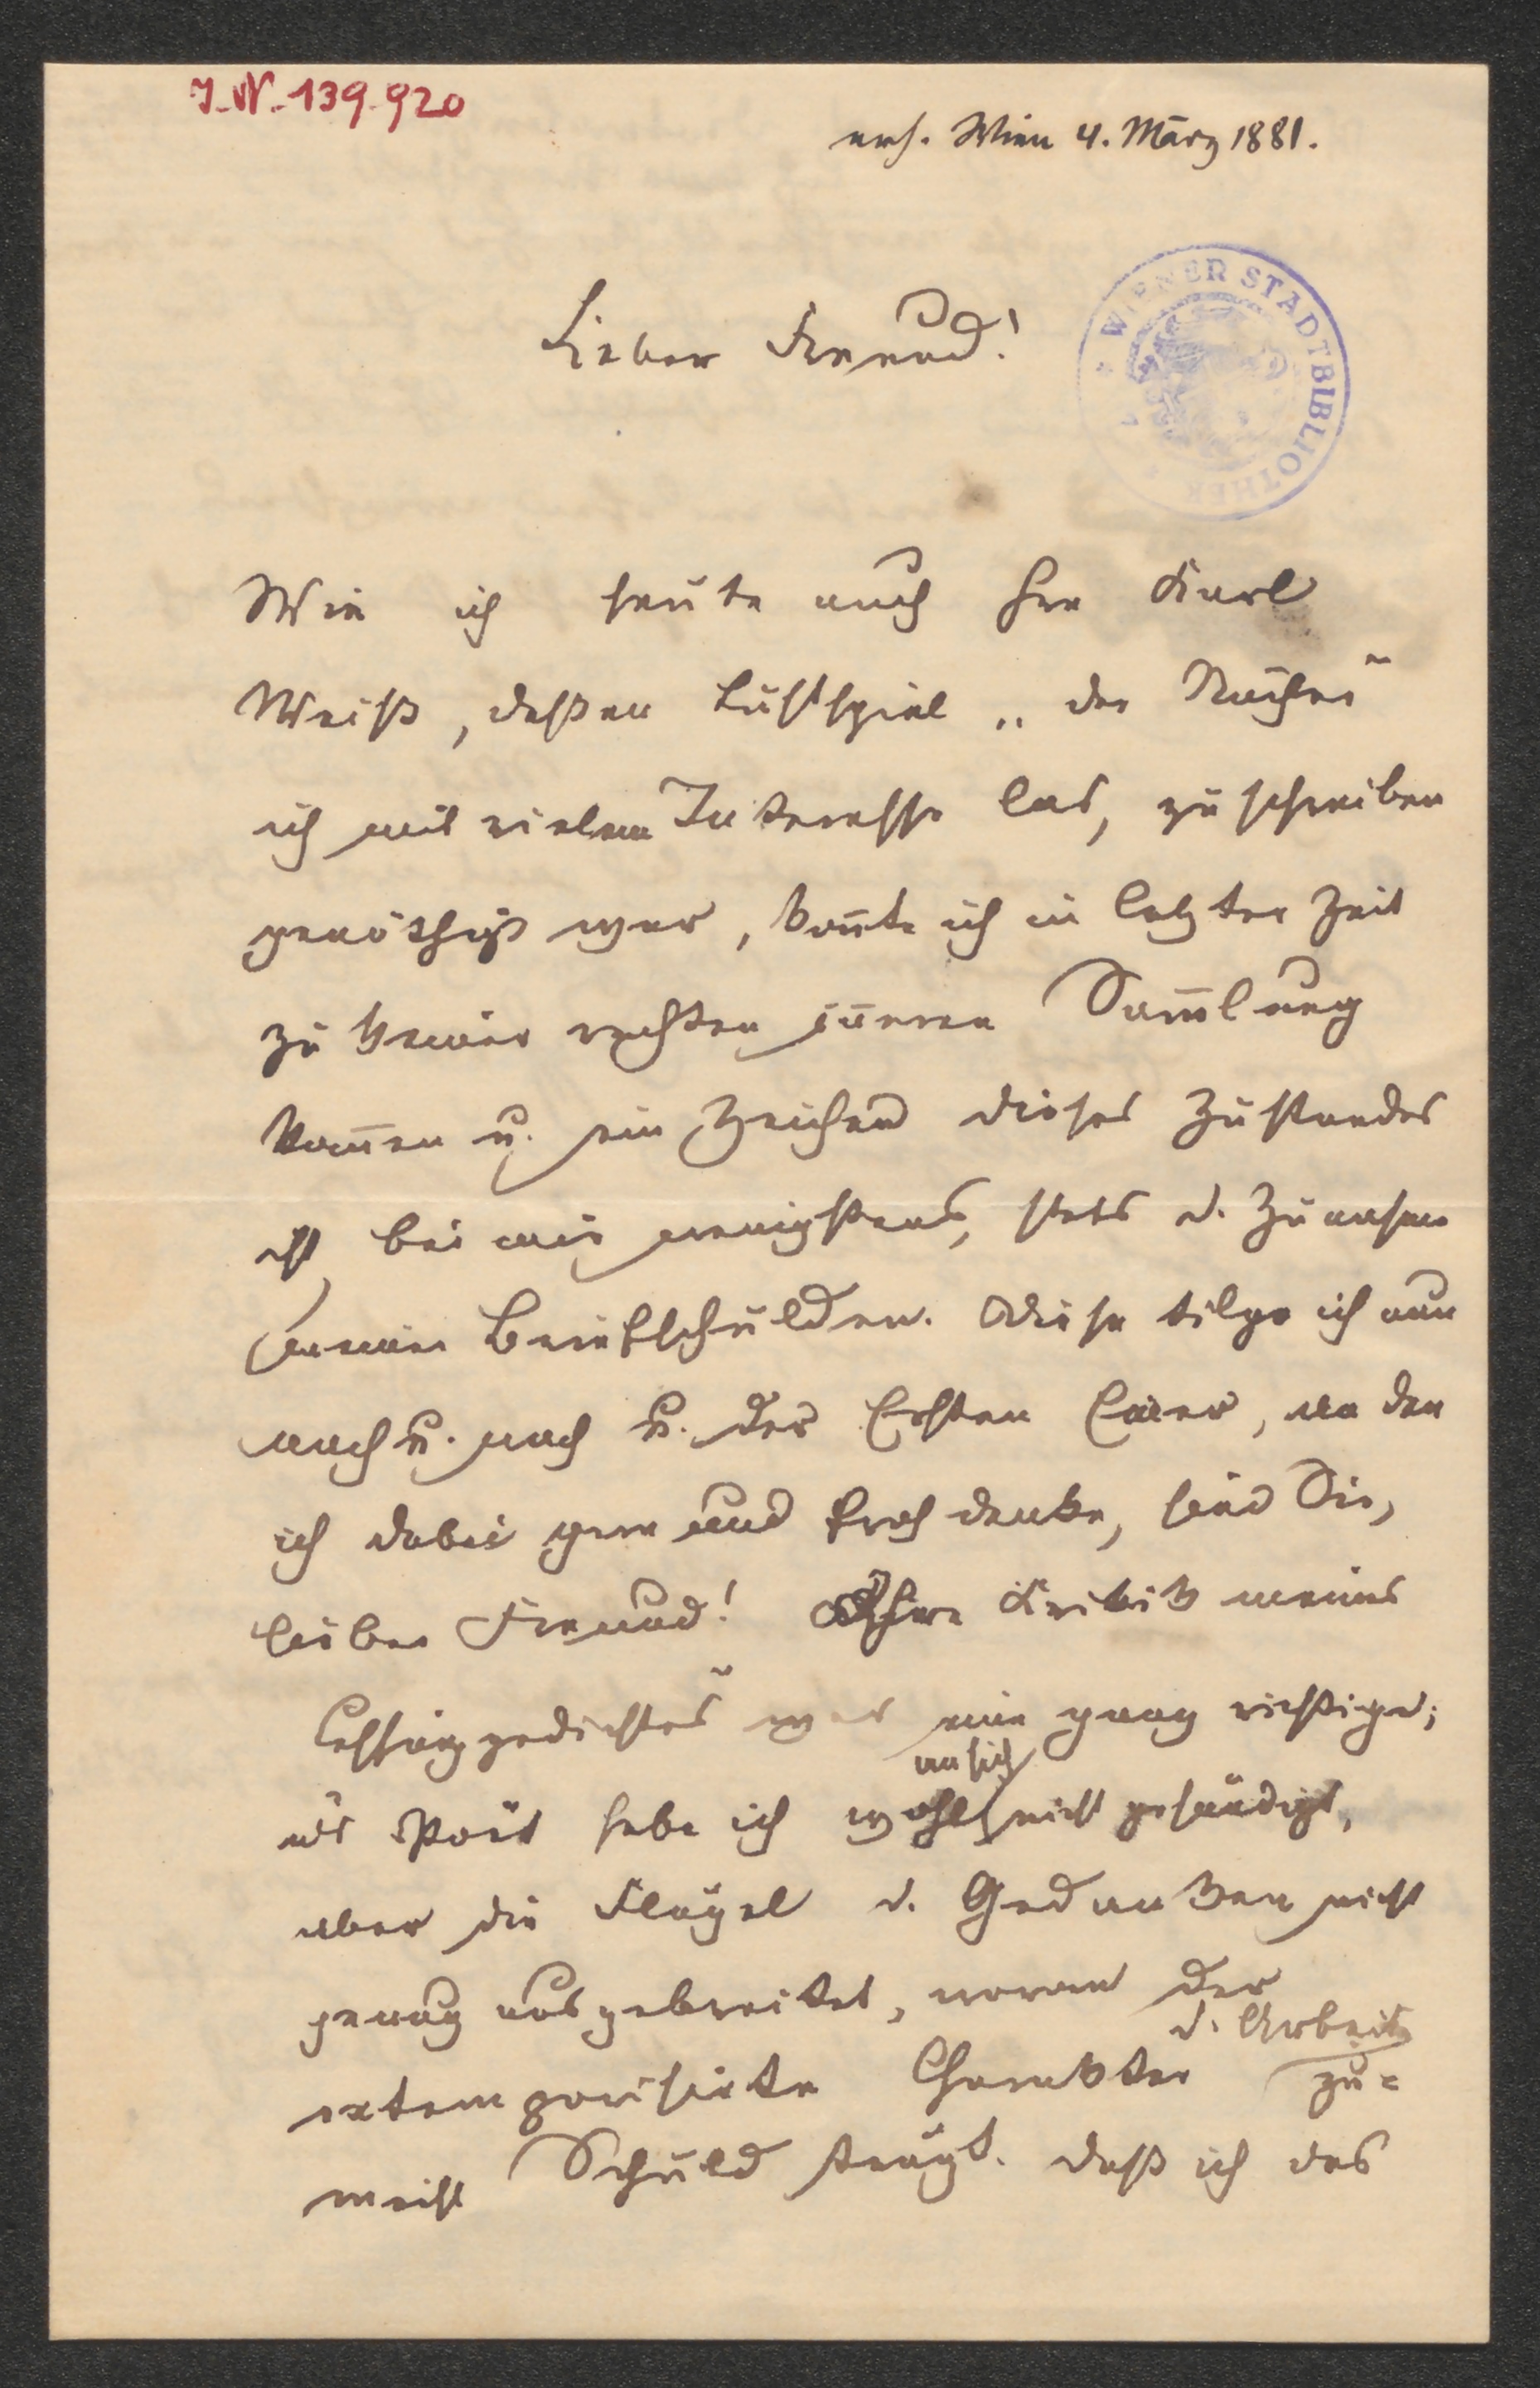 I. N. 139.920
erh. Wien 4. März 1881.
WIENER STADTBIBLIOTHEK
Lieber Freund!
Wie ich heute auch Hrn Karl
Weiß, deßen Lustspiel „der Rächer“
ich mit vielem Interesse las, zu schreiben
genöthigt war, kon̄te ich in letzter Zeit
zu keiner rechten in̄eren Sam̄lung
kom̄en u. ein Zeichen dieses Zustandes
ist, bei mir wenigstens, stets d. Zunahme
meiner Briefschulden. Diese tilge ich nun
nach u. nach u. der Ersten Einer, an den
ich dabei gern und froh denke, sind Sie,
lieber Freund! Ihre Kritik meines
Lessinggedichtes war eine ganz richtige;
als Poët habe ich wohl an sich nicht gesündigt,
aber die Flügel d. Gedanken nicht
genug ausgebreitet, woran der
extemporisirte Charakter d. Arbeit zu-
meist Schuld trägt. Daß ich das